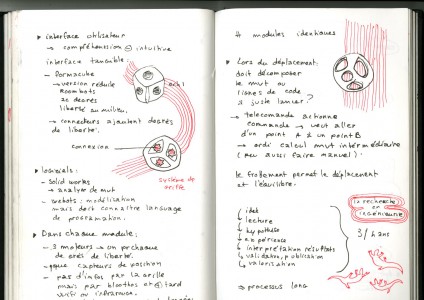 interface utilisateur
→ compréhension intuitive
interface tangible:
- formacube
→ version réduite
Roombots
degrés
liberté au milieu.
→ connecteurs ajoutent degrés
de liberté.
connexion
système de
griffe
logiciels:
- Solid works
→ analyser de mut
- webots: modélisation
mais doit connaître language
de programmation.
Dans chaque module:
- 3 moteurs → un pr chaque
de liberté.
capteurs de position
- pas d'infos par la grille
mais par
4 modules identiques
Lors du déplacement:
doit décomposer
le mut au
lignes de code
à juste lancer?
→ telecomande actionne
commande → veut aller
d'un point A à un point B
→ ordi calcul mut intermédiaire
(peu aussi faire manuel).
le frottement permet le déplacement
et l'équilibre.
la recherche
en
ingénieurie
idée
lecture
hypothèse
expérience
interprétation résultats
validation, publication
valorisation
3/4 ans
→ processus long